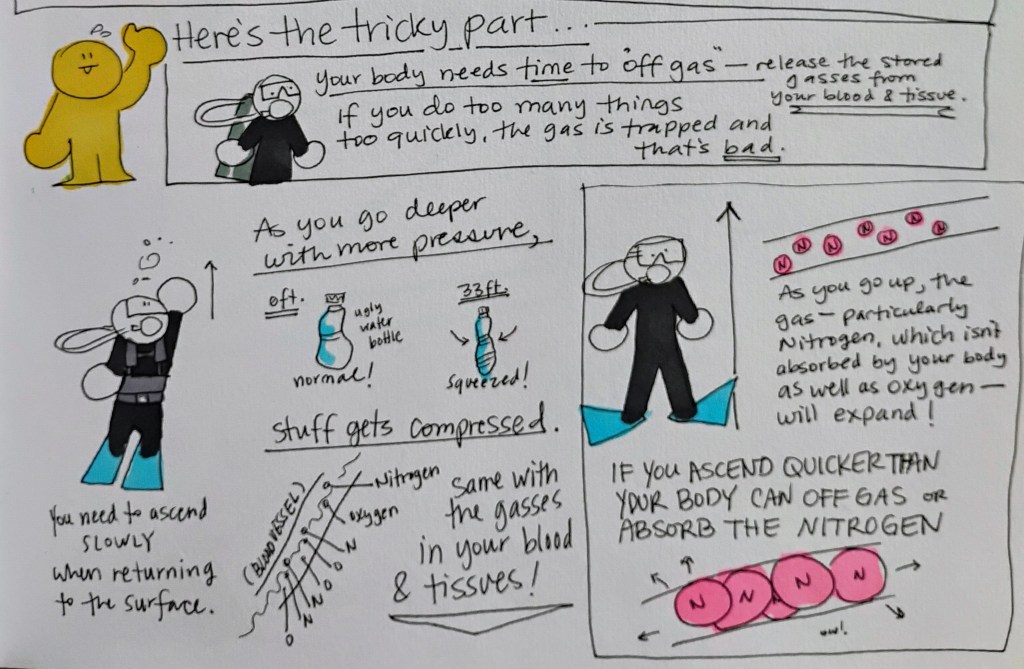 Here's the tricky part...
Your body needs time to "off gas" — release the stored
gasses from
your blood & tissue.
If you do too many things
too quickly, the gas is trapped and
that's bad.
As you go deeper
with more pressure,
0ft.
ugly
water
bottle
normal!
33ft.
squeezed!
stuff gets compressed.
You need to ascend
SLOWLY
when returning
to the surface.
(BLOOD VESSEL)
Nitrogen
oxygen
N
O
O
N
N
O
same with
the gasses
in your blood
& tissues!
N
N
N
N
N
N
N
As you go up, the
gas — particularly
Nitrogen, which isn't
absorbed by your body
as well as oxygen —
will expand!
IF YOU ASCEND QUICKER THAN
YOUR BODY CAN OFF GAS OR
ABSORB THE NITROGEN
N
N
N
N
N
ow!